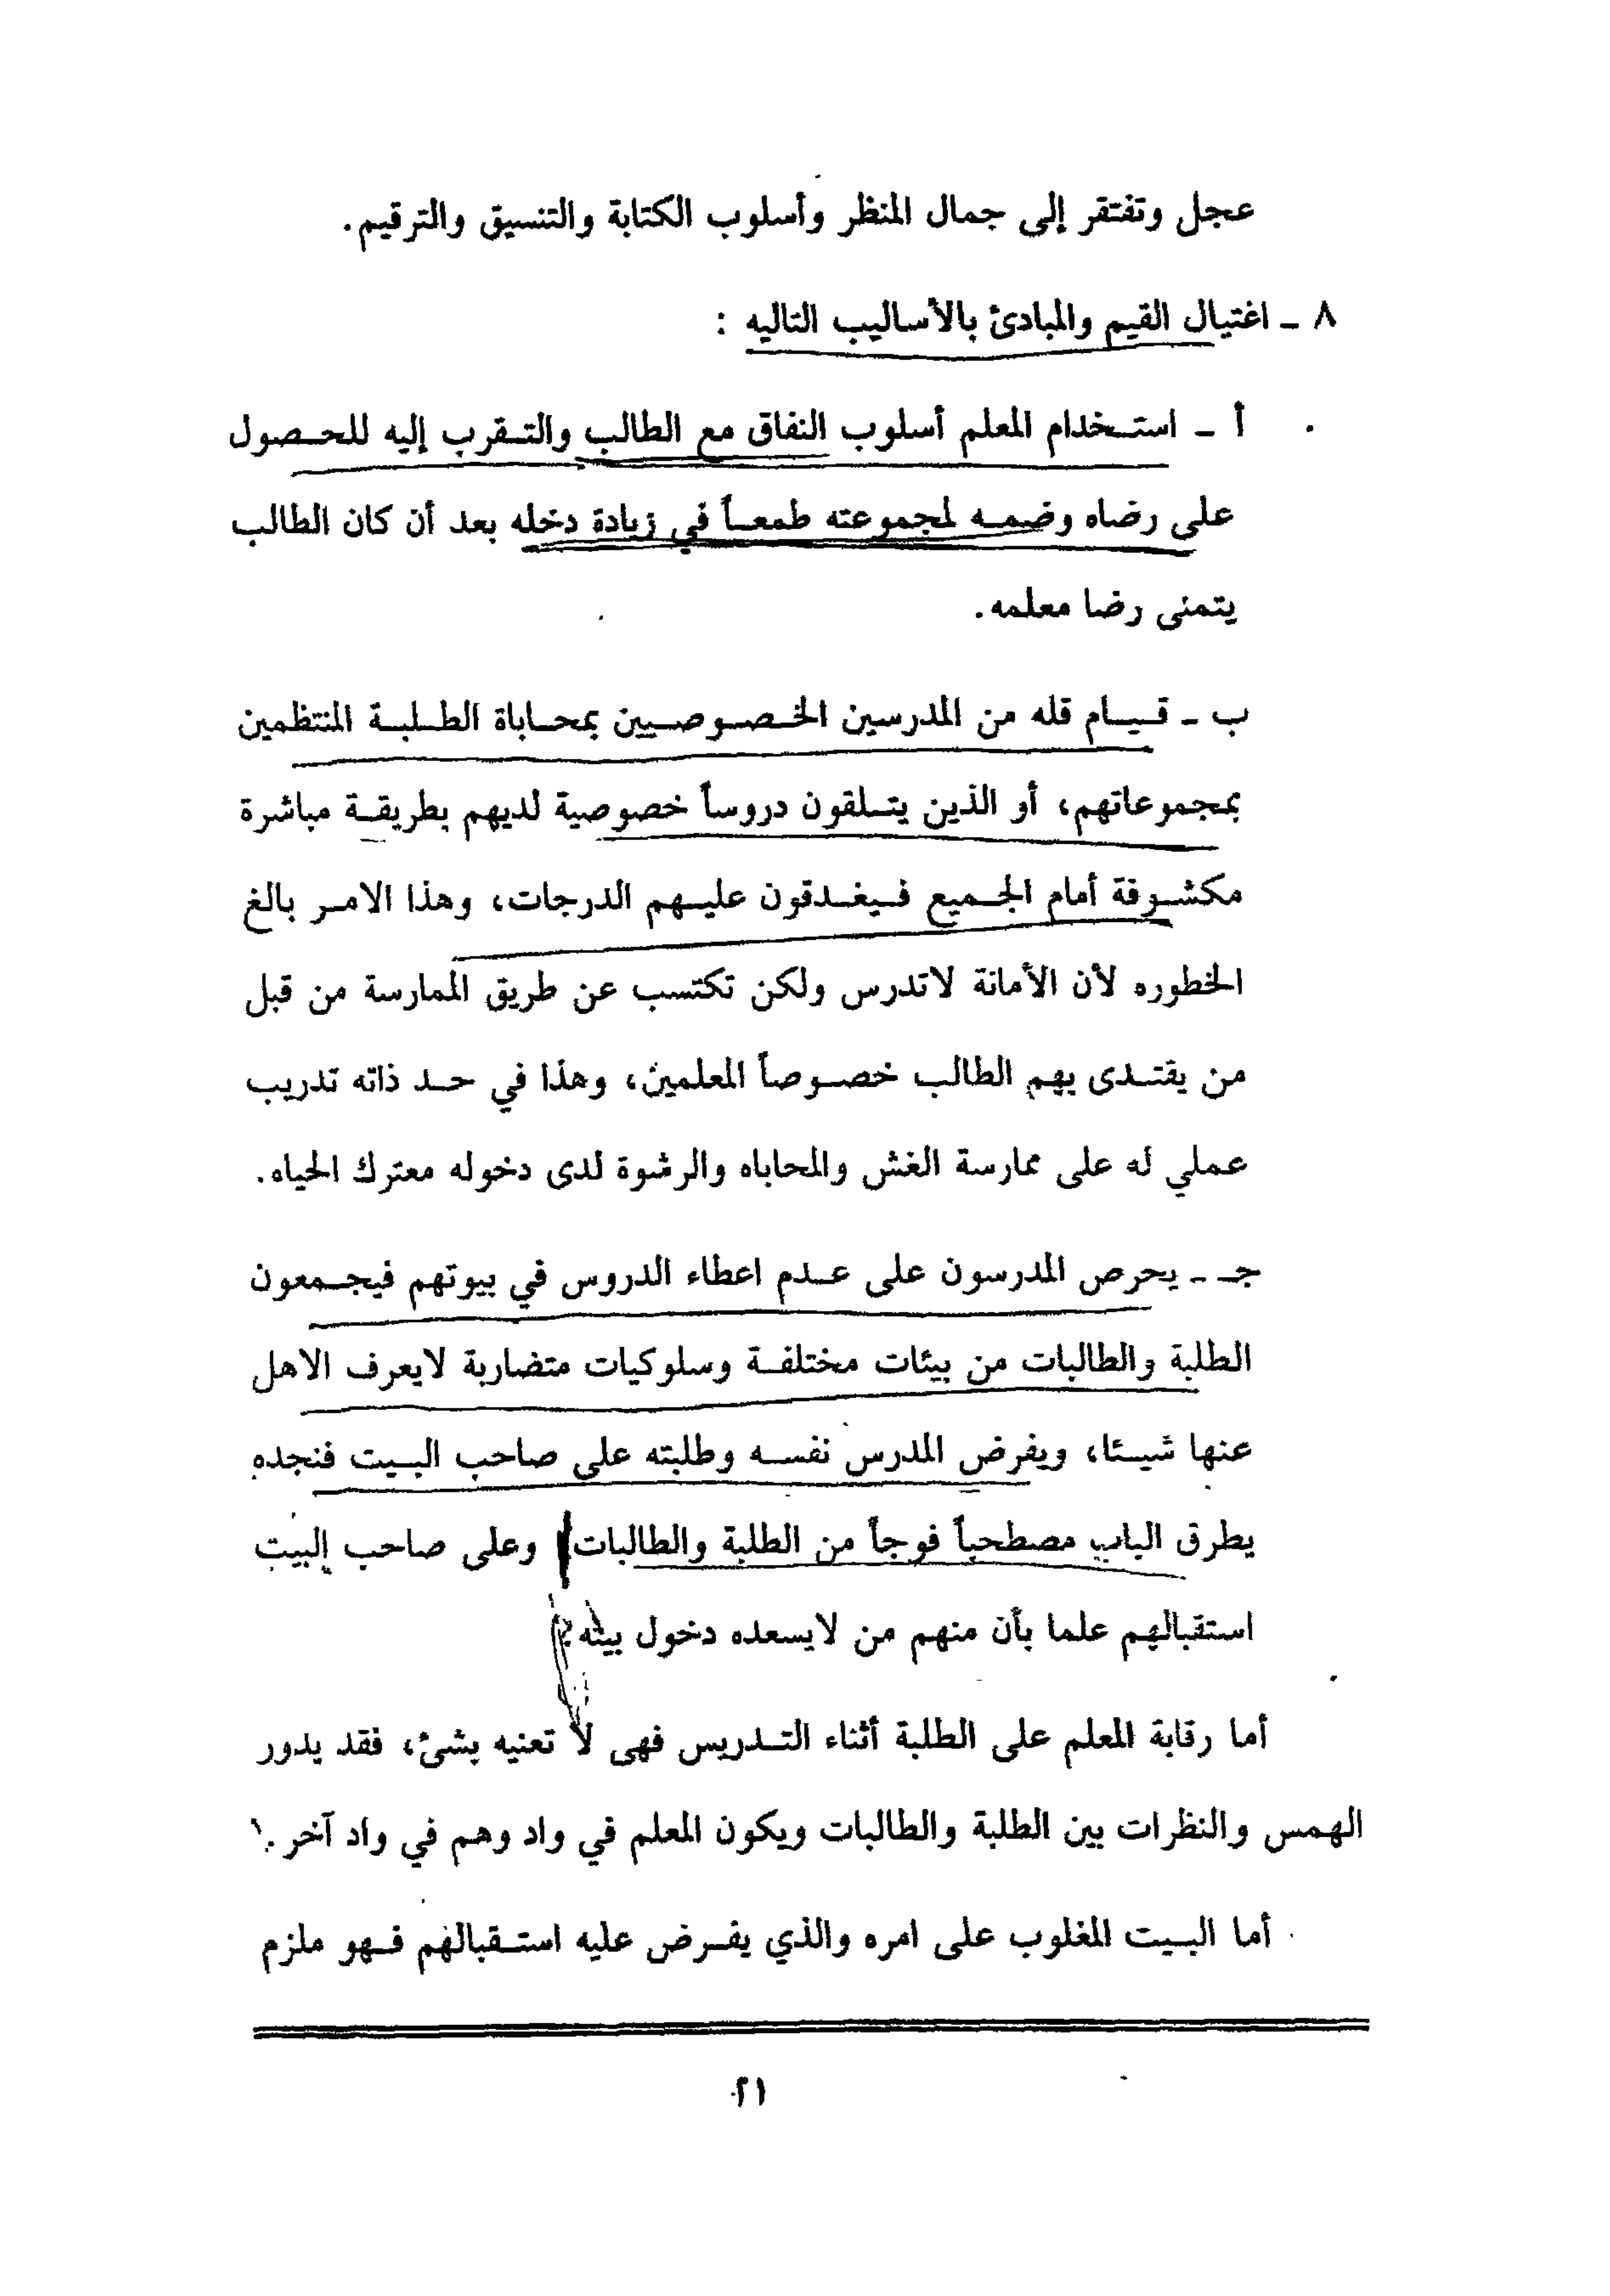 عجل وتفتقر إلى جمال المنظر وأسلوب الكتابة والتنسيق والترقيم.
٨ - اغتيال القيم والمبادئ بالأساليب التاليه :
أ - استخدام المعلم أسلوب النفاق مع الطالب والتقرب إليه للحصول
على رضاه وضمه لمجموعته طمعاً في زيادة دخله بعد أن كان الطالب
يتمنى رضا معلمه.
ب - قيام قله من المدرسين الخصوصيين بمحاباة الطلبة المنتظمين
بمجموعاتهم، أو الذين يتلقون دروساً خصوصية لديهم بطريقة مباشرة
مكشوفة أمام الجميع فيغدقون عليهم الدرجات، وهذا الامر بالغ
الخطوره لأن الأمانة لاتدرس ولكن تكتسب عن طريق الممارسة من قبل
من يقتدى بهم الطالب خصوصاً المعلمين، وهذا في حد ذاته تدريب
عملي له على ممارسة الغش والمحاباه والرشوة لدى دخوله معترك الحياه.
جـ - يحرص المدرسون على عدم اعطاء الدروس في بيوتهم فيجمعون
الطلبة والطالبات من بيئات مختلفة وسلوكيات متضاربة لايعرف الاهل
عنها شيئا، ويفرض المدرس نفسه وطلبته على صاحب البيت فنجده
يطرق الباب مصطحباً فوجاً من الطلبة والطالبات وعلى صاحب البيت
استقبالهم علما بأن منهم من لايسعده دخول بيته؟
أما رقابة المعلم على الطلبة أثناء التدريس فهى لا تعنيه بشئ، فقد يدور
الهمس والنظرات بين الطلبة والطالبات ويكون المعلم في واد وهم في واد آخر.
أما البيت المغلوب على امره والذي يفرض عليه استقبالهم فهو ملزم
٢١